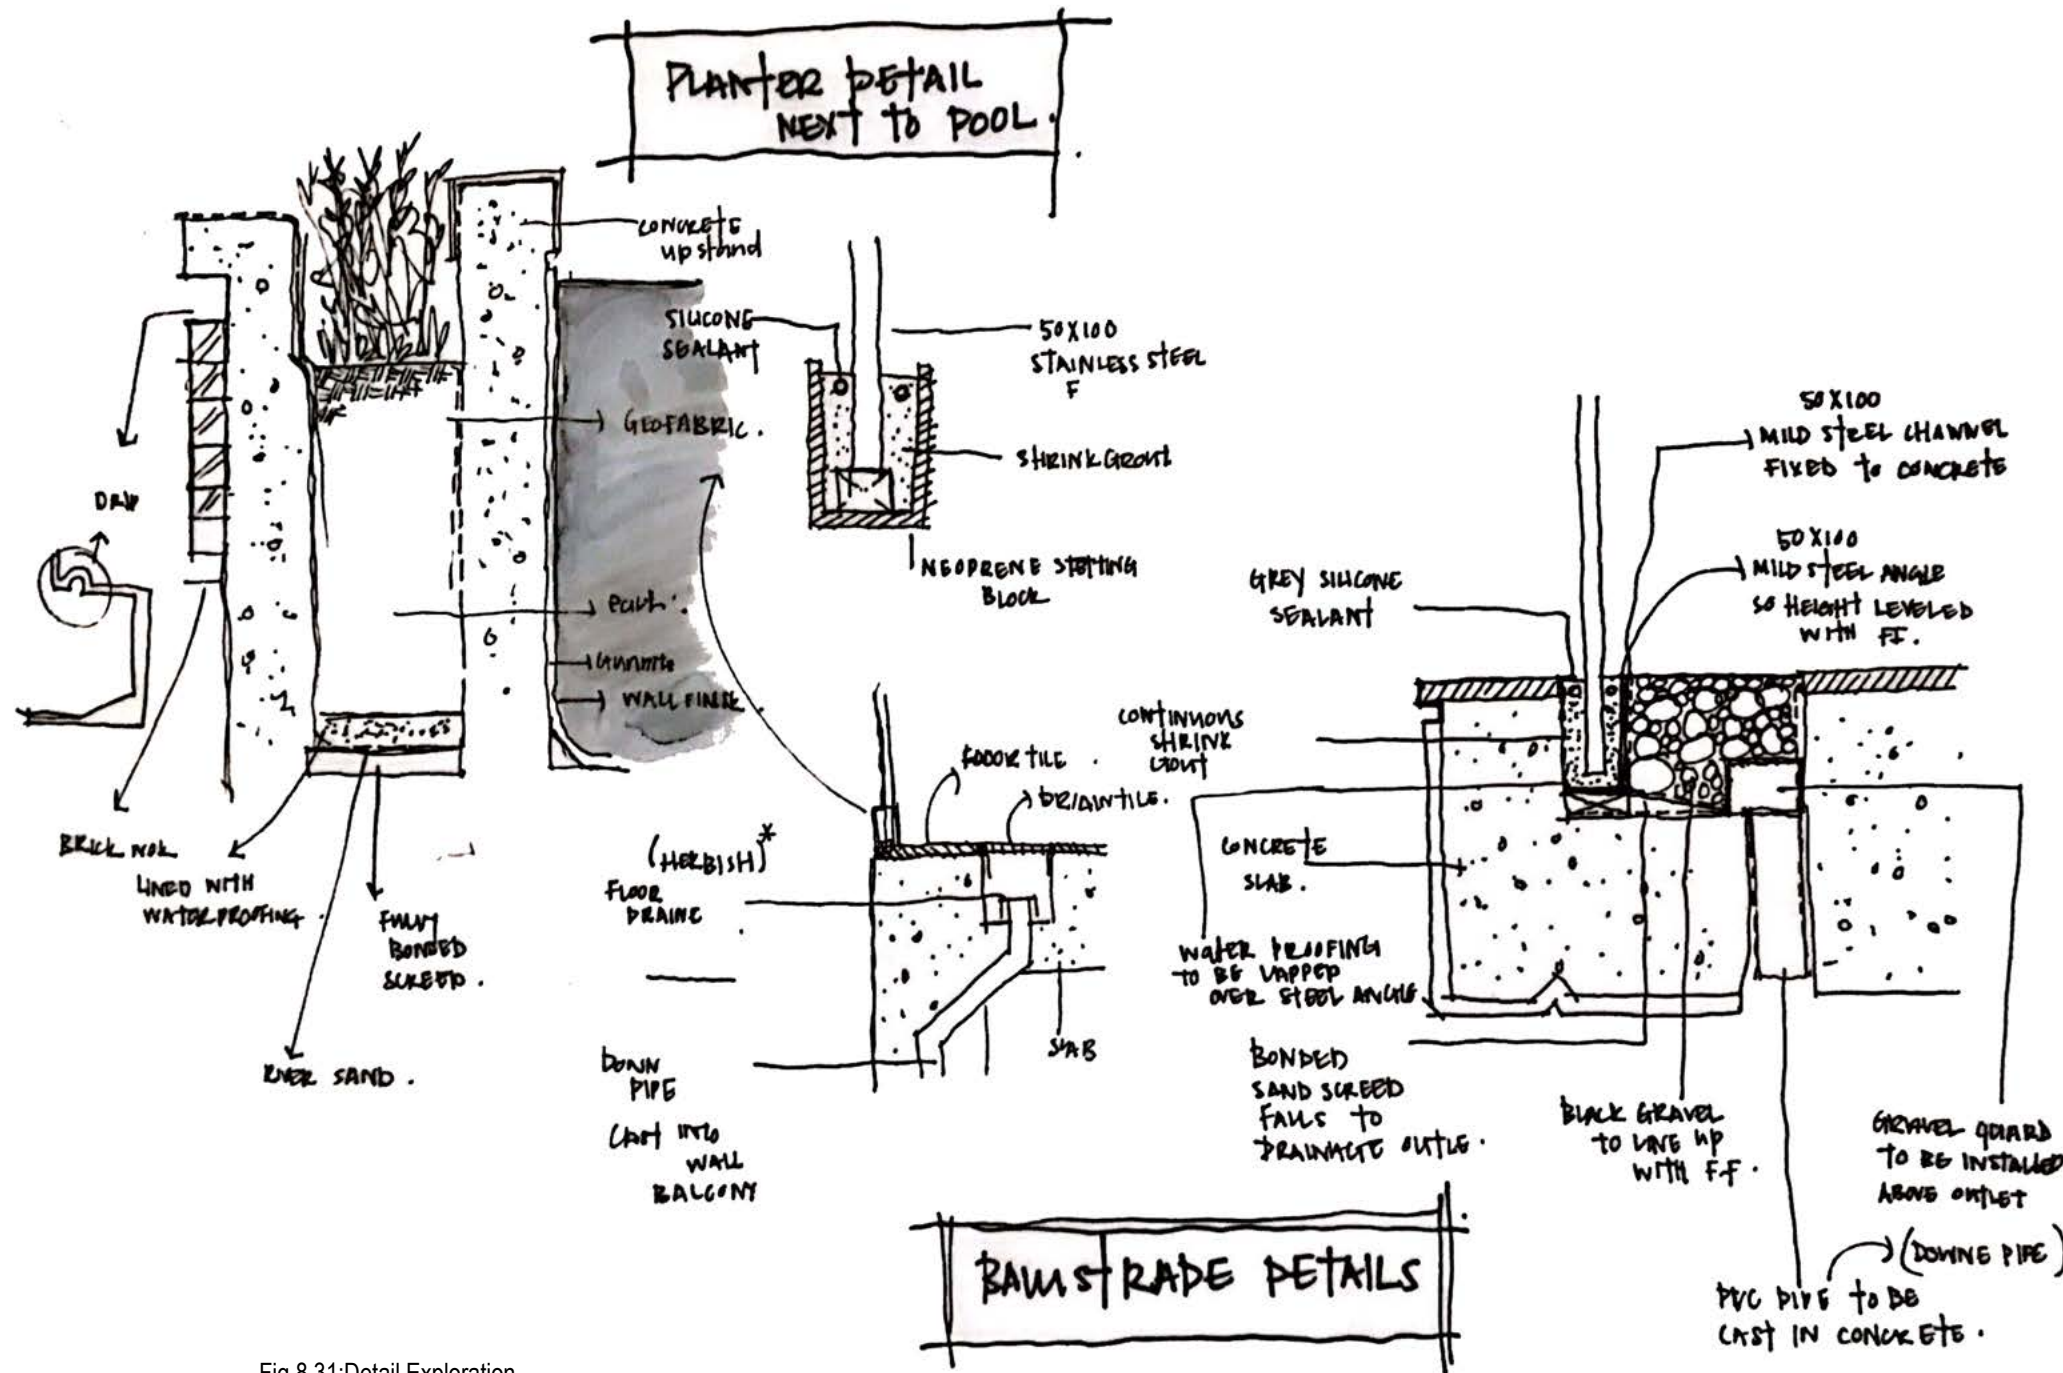 PLANTER DETAIL
NEXT TO POOL.
CONCRETE
upstand
SILICONE
SEALANT
50X100
STAINLESS STEEL
F
GEOFABRIC.
SHRINK GROUT
NEOPRENE STETTING
BLOCK
DRIP
earth.
Gunnite
WALL FINISH
BRICK WORK
LINED WITH
WATERPROOFING
FULLY
BONDED
SCREED.
RIVER SAND.
FOOOR TILE.
DRIAIN TILE.
(HERBISH)*
FLOOR
DRAINE
DOWN
PIPE
CAST INTO
WALL
BALCONY
SLAB
50X100
MILD STEEL CHANNEL
FIXED to CONCRETE
50X100
MILD STEEL ANGLE
SO HEIGHT LEVELED
WITH
GREY SILICONE
SEALANT
CONTINUOUS
SHRINK
GOUT
CONCRETE
SLAB.
WATER PROOFING
TO BE LAPPED
OVER STEEL ANGLE
BONDED
SAND SCREED
FALLS TO
DRAINAGE OUTLE.
BLACK GRAVEL
TO LINE UP
WITH F.F.
GRAVEL GUARD
TO BE INSTALLED
ABOVE OUTLET
(DOWNE PIPE)
PVC PIPE to BE
CAST IN CONCRETE.
BALUSTRADE DETAILS
Fig 8.31:Detail Exploration